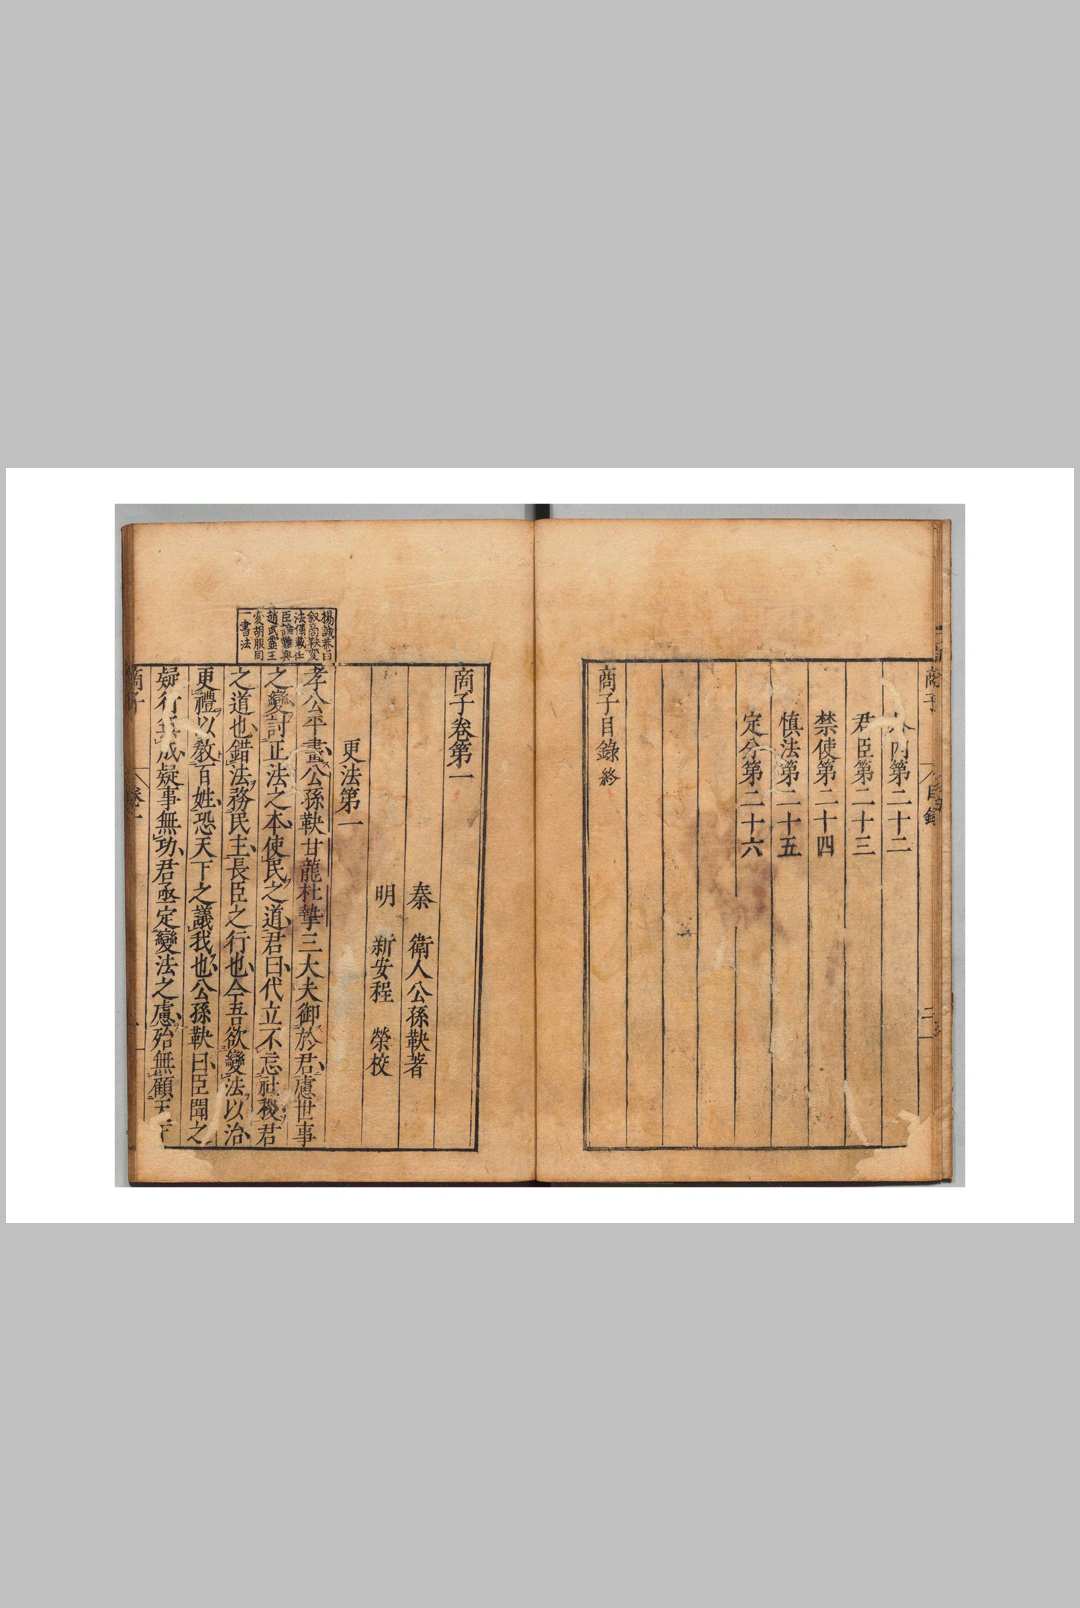 外內第二十二
君臣第二十三
禁使第二十四
慎法第二十五
定分第二十六
商子目錄終
商子卷第一
秦 衛人公孫鞅著
明 新安程 榮校
更法第一
楊誠齋曰
叙商鞅變
法備載仕
臣論難與
趙武靈王
變胡服同
一書法
孝公平畫公孫鞅甘龍杜摯三大夫御於君慮世事
之變討正法之本使民之道君曰代立不忘社稷君
之道也錯法務民主長臣之行也今吾欲變法以治
更禮以教百姓恐天下之議我也公孫鞅曰臣聞之
疑行無成疑事無功君亟定變法之慮殆無顧天下
商子
卷一